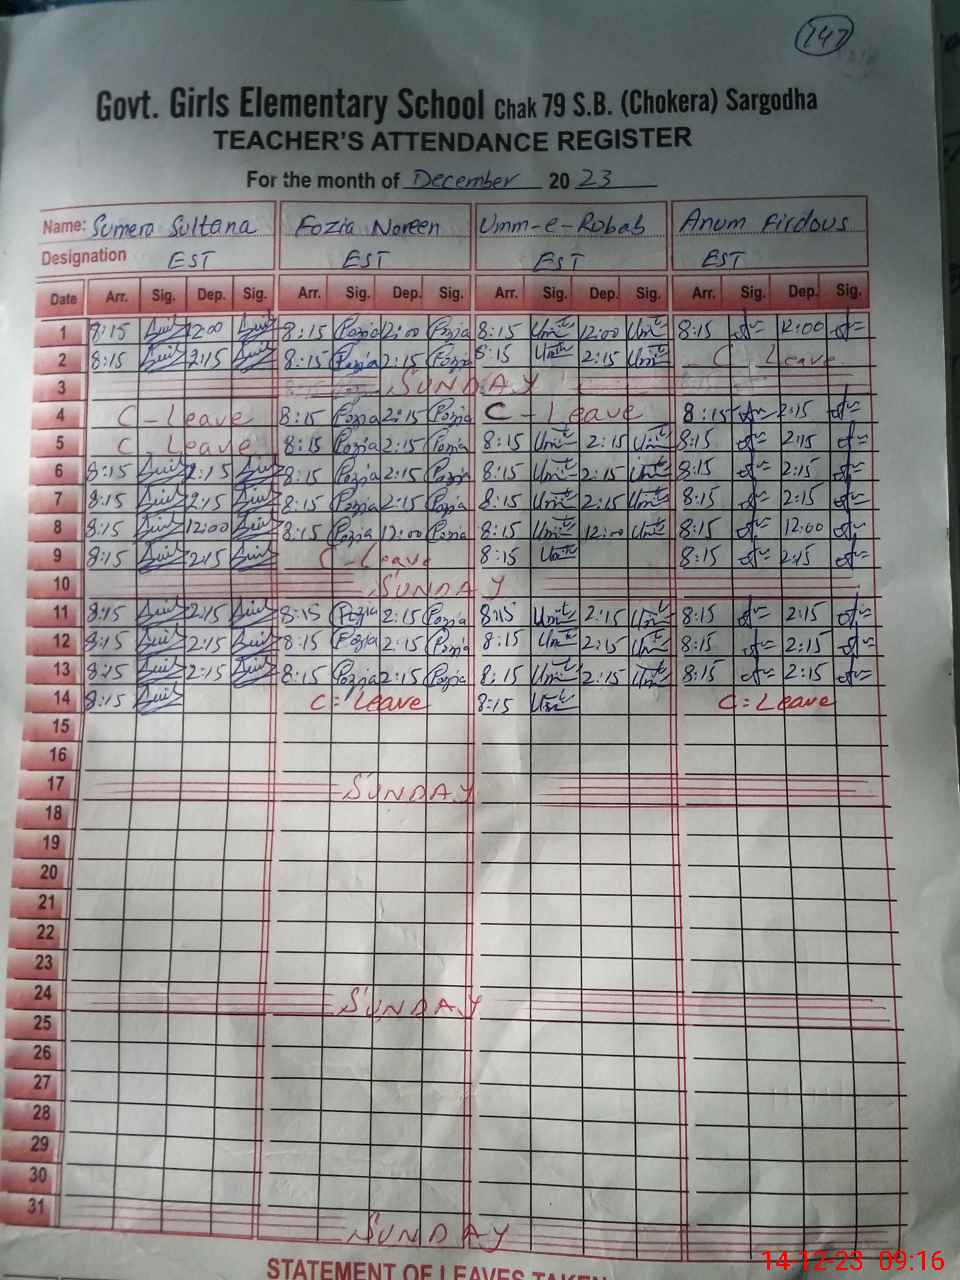 247
Govt. Girls Elementary School Chak 79 S.B. (Chokera) Sargodha
TEACHER'S ATTENDANCE REGISTER
For the month of December 20 23
Name: Sumera Sultana Fozia Noreen Umm-e-Robab Anum Firdous
Designation EST EST EST EST
Date Arr. Sig. Dep. Sig. Arr. Sig. Dep. Sig. Arr. Sig. Dep. Sig. Arr. Sig. Dep. Sig.
1 8:15 12:00 8:15 Fozia 12:00 Fozia 8:15 12:00 8:15 12:00
2 8:15 2:15 8:15 Fozia 2:15 Fozia 8:15 2:15 C Leave
3 SUNDAY
4 C-Leave 8:15 Fozia 2:15 Fozia C-Leave 8:15 2:15
5 C Leave 8:15 Fozia 2:15 Fozia 8:15 2:15 8:15 2:15
6 8:15 2:15 8:15 Fozia 2:15 Fozia 8:15 2:15 8:15 2:15
7 8:15 2:15 8:15 Fozia 2:15 Fozia 8:15 2:15 8:15 2:15
8 8:15 12:00 8:15 Fozia 12:00 Fozia 8:15 12:00 8:15 12:00
9 8:15 2:15 C-Leave 8:15 8:15 2:15
10 SUNDAY
11 8:15 2:15 8:15 Fozia 2:15 Fozia 8:15 2:15 8:15 2:15
12 8:15 2:15 8:15 Fozia 2:15 Fozia 8:15 2:15 8:15 2:15
13 8:15 2:15 8:15 Fozia 2:15 Fozia 8:15 2:15 8:15 2:15
14 8:15 C=Leave 8:15 C=Leave
15
16
17 SUNDAY
18
19
20
21
22
23
24 SUNDAY
25
26
27
28
29
30
31 SUNDAY
STATEMENT OF LEAVES TAKEN
14-12-23 09:16